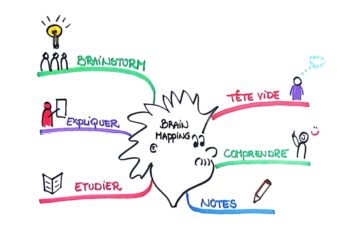 BRAINSTORM
EXPLIQUER
ETUDIER
BRAIN
MAPPING
TÊTE VIDE
COMPRENDRE
NOTES